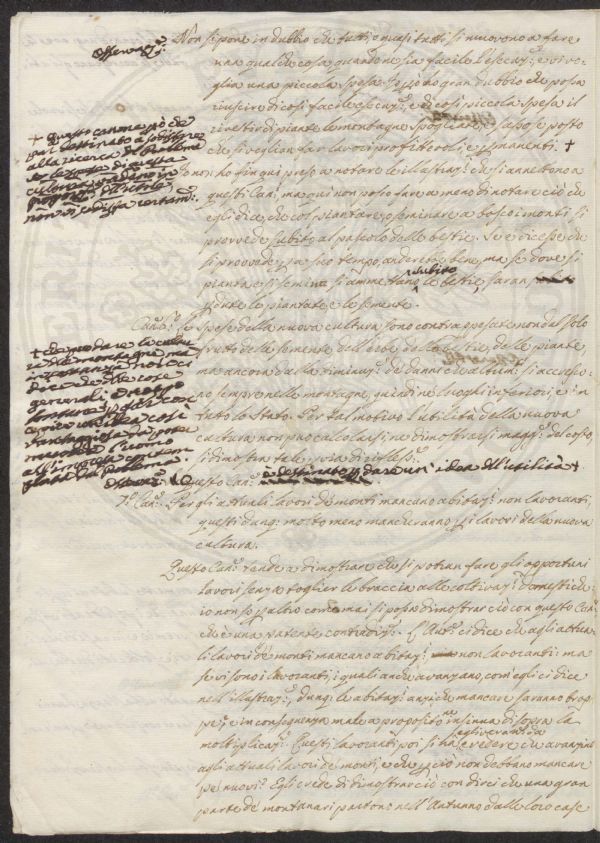 Osservaz.e
Non si pone in dubbio che tutti, o quasi tutti si muovono a fare
una qualche cosa quando ne sia facile l'esecuz.e e vi vo-
glia una piccola spesa. Si può gran dubbio che possa
riuscire di così facile esecuz.e, e di così piccola spesa il
rivestir di piante le montagne spogliate, e sassose posto
che si voglian far lavori profittevoli e permanenti. +
Io non ho fin qui preso a notare le illustraz.i che si annettono a
questi Can.i, ma qui non posso fare a meno di notare ciò che
egli dice, che col piantare, o seminare a bosco i monti si
provvede subito al pascolo delle bestie. Se e' dicesse che
si provvede, passato tempo anderebbe bene, ma se dove si
pianta e si semina si ammettano subito le bestie, saran
perdute le piantate e le semente.
+ questo canone più che
par destinato a soddisfare
alla ricerca del Problema
non vi soddisfa certam.e
Can.e 6.o Le spese della nuova cultura sono contrappesate non dal solo
frutto delle semente dell'erbe, delle bestie, delle piante,
ma ancora dalla diminuz.e de' danni che altrim.i si accresco-
no sempre nelle montagne, quindi ne' luoghi inferiori, e in
tutto lo Stato. Per tal motivo l'utilità della nuova
cultura non può calcolarsi, nè dimostrarsi magg.e del costo,
si dimostra tale, per via di rifless.i
Osservaz.e Questo Can.e è destinato a dare un' idea dell'utilità +
7.o Can.e Per gli attuali lavori de' monti mancano abitaz.i non lavoranti,
questi dunq.e molto meno mancaranno p. i lavori della nuova
cultura.
Questo Can.e tende a dimostrare che si potran fare gli opportuni
lavori senza toglier le braccia alle coltivaz.i domestiche.
io non so p. altro come mai si possa dimostrar ciò con questo Can.e
che è una patente contradiz.e L'Aut.e ci dice che agli attua-
li lavori de' monti mancano abitaz.i non lavoranti: ma
se vi sono i lavoranti, i quali anche avanzano, com'egli ci dice
nell'illustraz.e, dunq.e le abitaz.i anzi che mancare saranno trop-
pe, e in conseguenza male a proposito ne insinua di sopra la
moltiplicaz.e Questi lavoranti poi si ha egli veramente a credere che avanzino
agli attuali lavori de' monti, e che perciò non debbano mancare
pe' nuovi? Egli crede di dimostrar ciò con dirci che una gran
parte de' montanari partono nell'Autunno dalle loro case